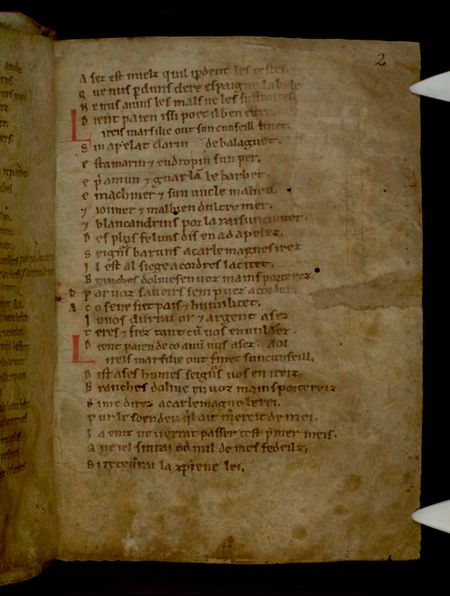 A sez est mielz quil ip̄dent les testes.
Q ue nus p̄duns clere espaigne la bele
N e nus aiuns les mals ne les suffraites
D ient paien issi poet il ben estre.
L i reis marsilie out sun cunseill finet.
S in apelat clarin de balaguet.
e stamarin ⁊ eudropin sun per.
e p̄amun ⁊ guarlā le barbet.
e machiner ⁊ sun uncle maheu.
⁊ ioimer ⁊ malbien dultremer.
⁊ blancandrins por la raisun cunter.
D es plus feluns dis en ad apelez.
S eignr̄s baruns a carlemagnes irez
I l est al siege a cordres la citet.
B ranches dolives en voz mains porterez
b P or voz saveirs sem puez acorder
a C o senefiet pais ⁊ humilitet.
I o vos durrai or ⁊ argent asez
t eres ⁊ fiez tant cū vos en vuldrez.
D ient paien de co avun nus asez. Aoi
L i reis marsilie out finet sun cunseill.
D ist a ses humes seignr̄s vos en ireiz.
B ranches dolive en voz mains portereiz
S i me direz a carlemagne le rei.
P ur le soen deu ql ait mercit de mei.
I a einz ne verrat passer cest p̄mer meis.
Q ue jel sivrai od mil de mes fedeilz.
S i recev̄rai la xp̄iene lei.
2